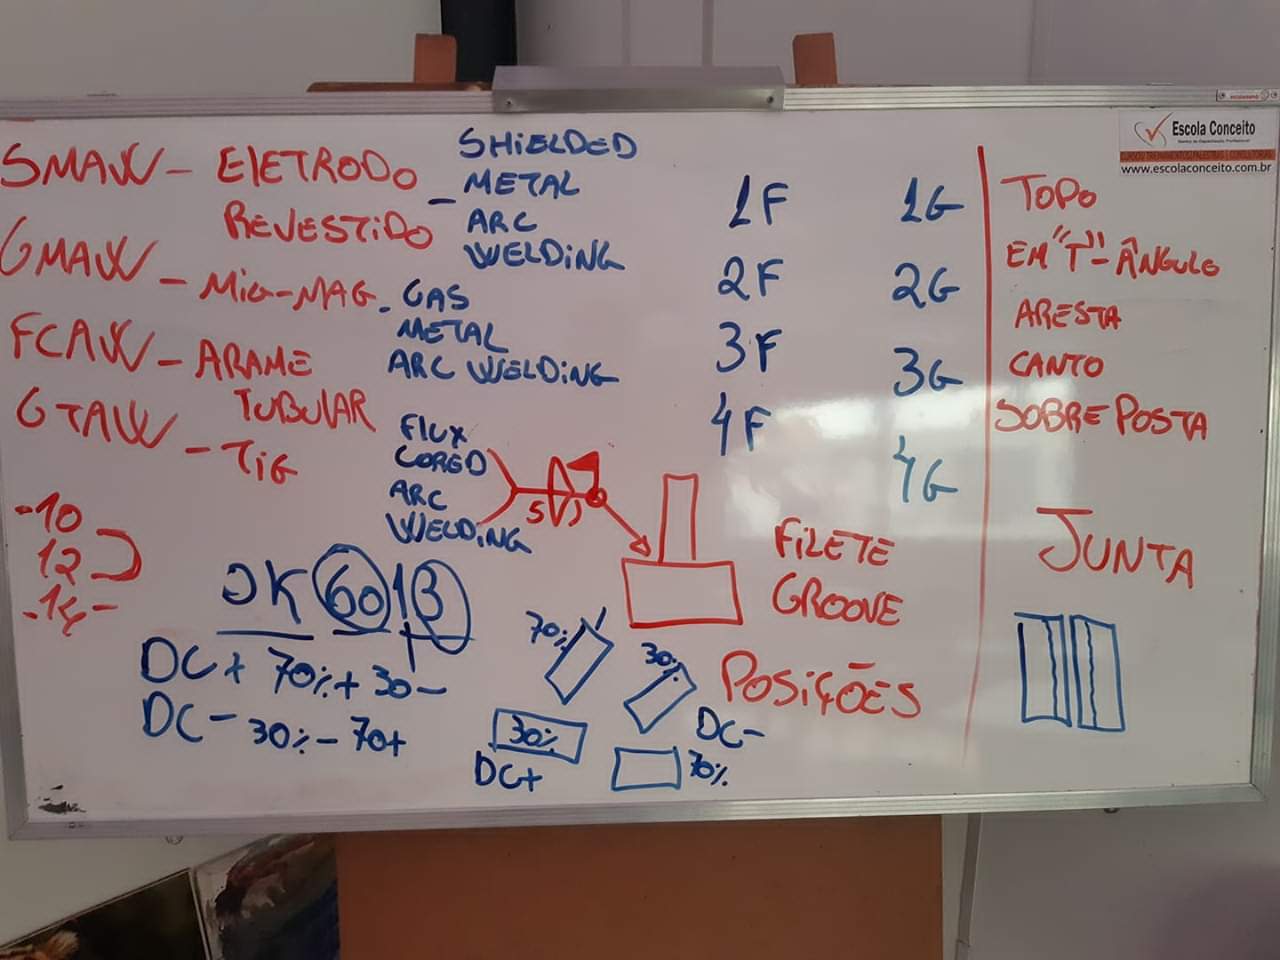 Escola Conceito
www.escolaconceito.com.br
SMAW - ElETRODO
REVESTIDO
- SHIELDED
METAL
ARC
WELDING
GMAW - MIG-MAG
- GAS
METAL
ARC WELDING
FCAW - ARAME
TUBULAR
FLUX
CORED
ARC
WELDING
GTAW - TIG
1F
2F
3F
4F
1G
2G
3G
4G
TOPO
EM "T" - ÂNGULO
ARESTA
CANTO
SOBREPOSTA
JUNTA
-10
12
-14-
OK 6013
DC+ 70%+ 30-
DC- 30%- 70+
5
FILETE
GROOVE
POSIÇÕES
70%
30%
DC+
30%
DC-
70%